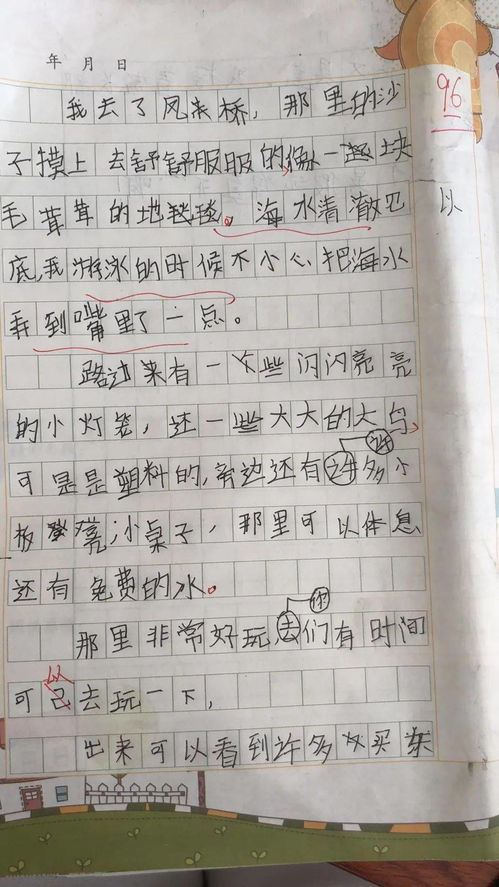 年 月 日
96
我去了凤来桥，那里的沙
子摸上去舒舒服服的像一块
毛茸茸的地毯。海水清澈见
底，我游泳的时候不小心把海水
弄到嘴里了一点。
以
路过来有一些闪闪亮亮
的小灯笼，还一些大大的大鸟
许
可是是塑料的，旁边还有多小
板凳小桌子，那里可以体息
还有免费的水。
你
那里非常好玩去们有时间
以
可己去玩一下，
出来可以看到许多买东